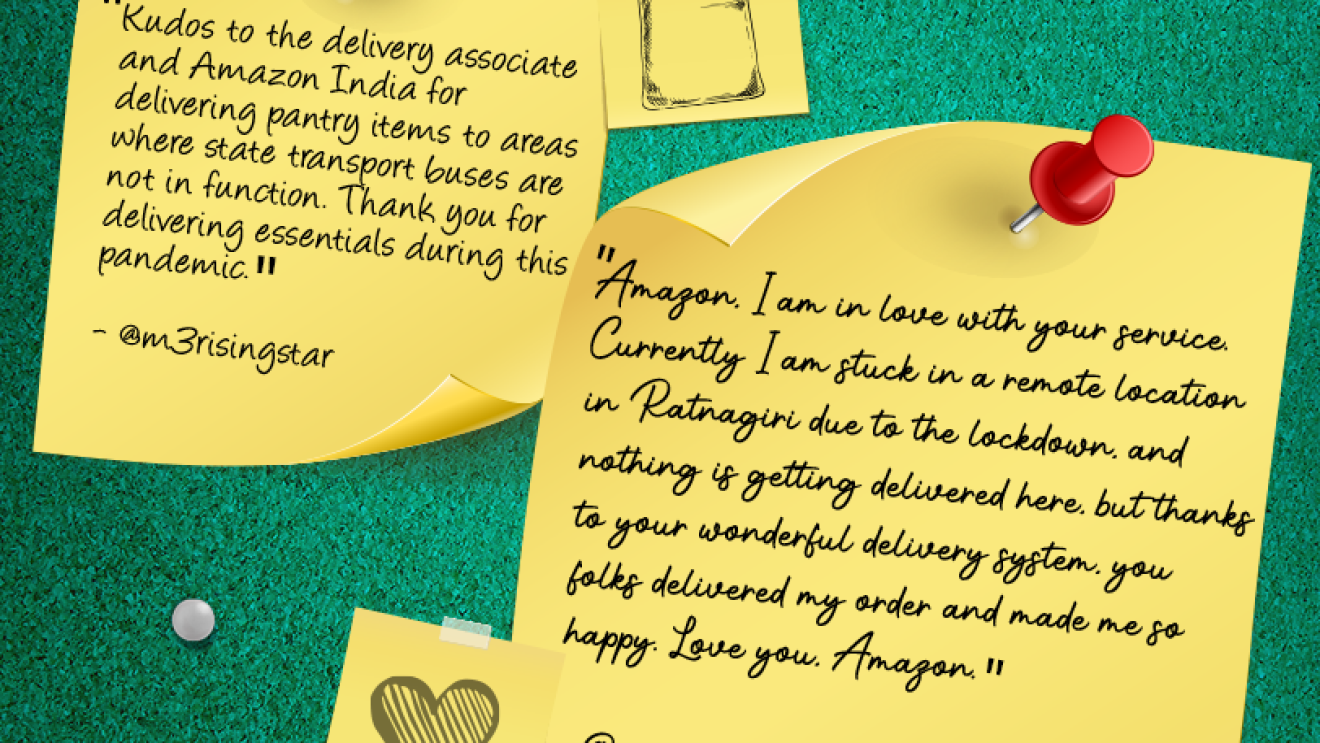 "Kudos to the delivery associate
and Amazon India for
delivering pantry items to areas
where state transport buses are
not in function. Thank you for
delivering essentials during this
pandemic."
- @m3risingstar
"Amazon, I am in love with your service.
Currently I am stuck in a remote location
in Ratnagiri due to the lockdown, and
nothing is getting delivered here, but thanks
to your wonderful delivery system, you
folks delivered my order and made me so
happy. Love you, Amazon."